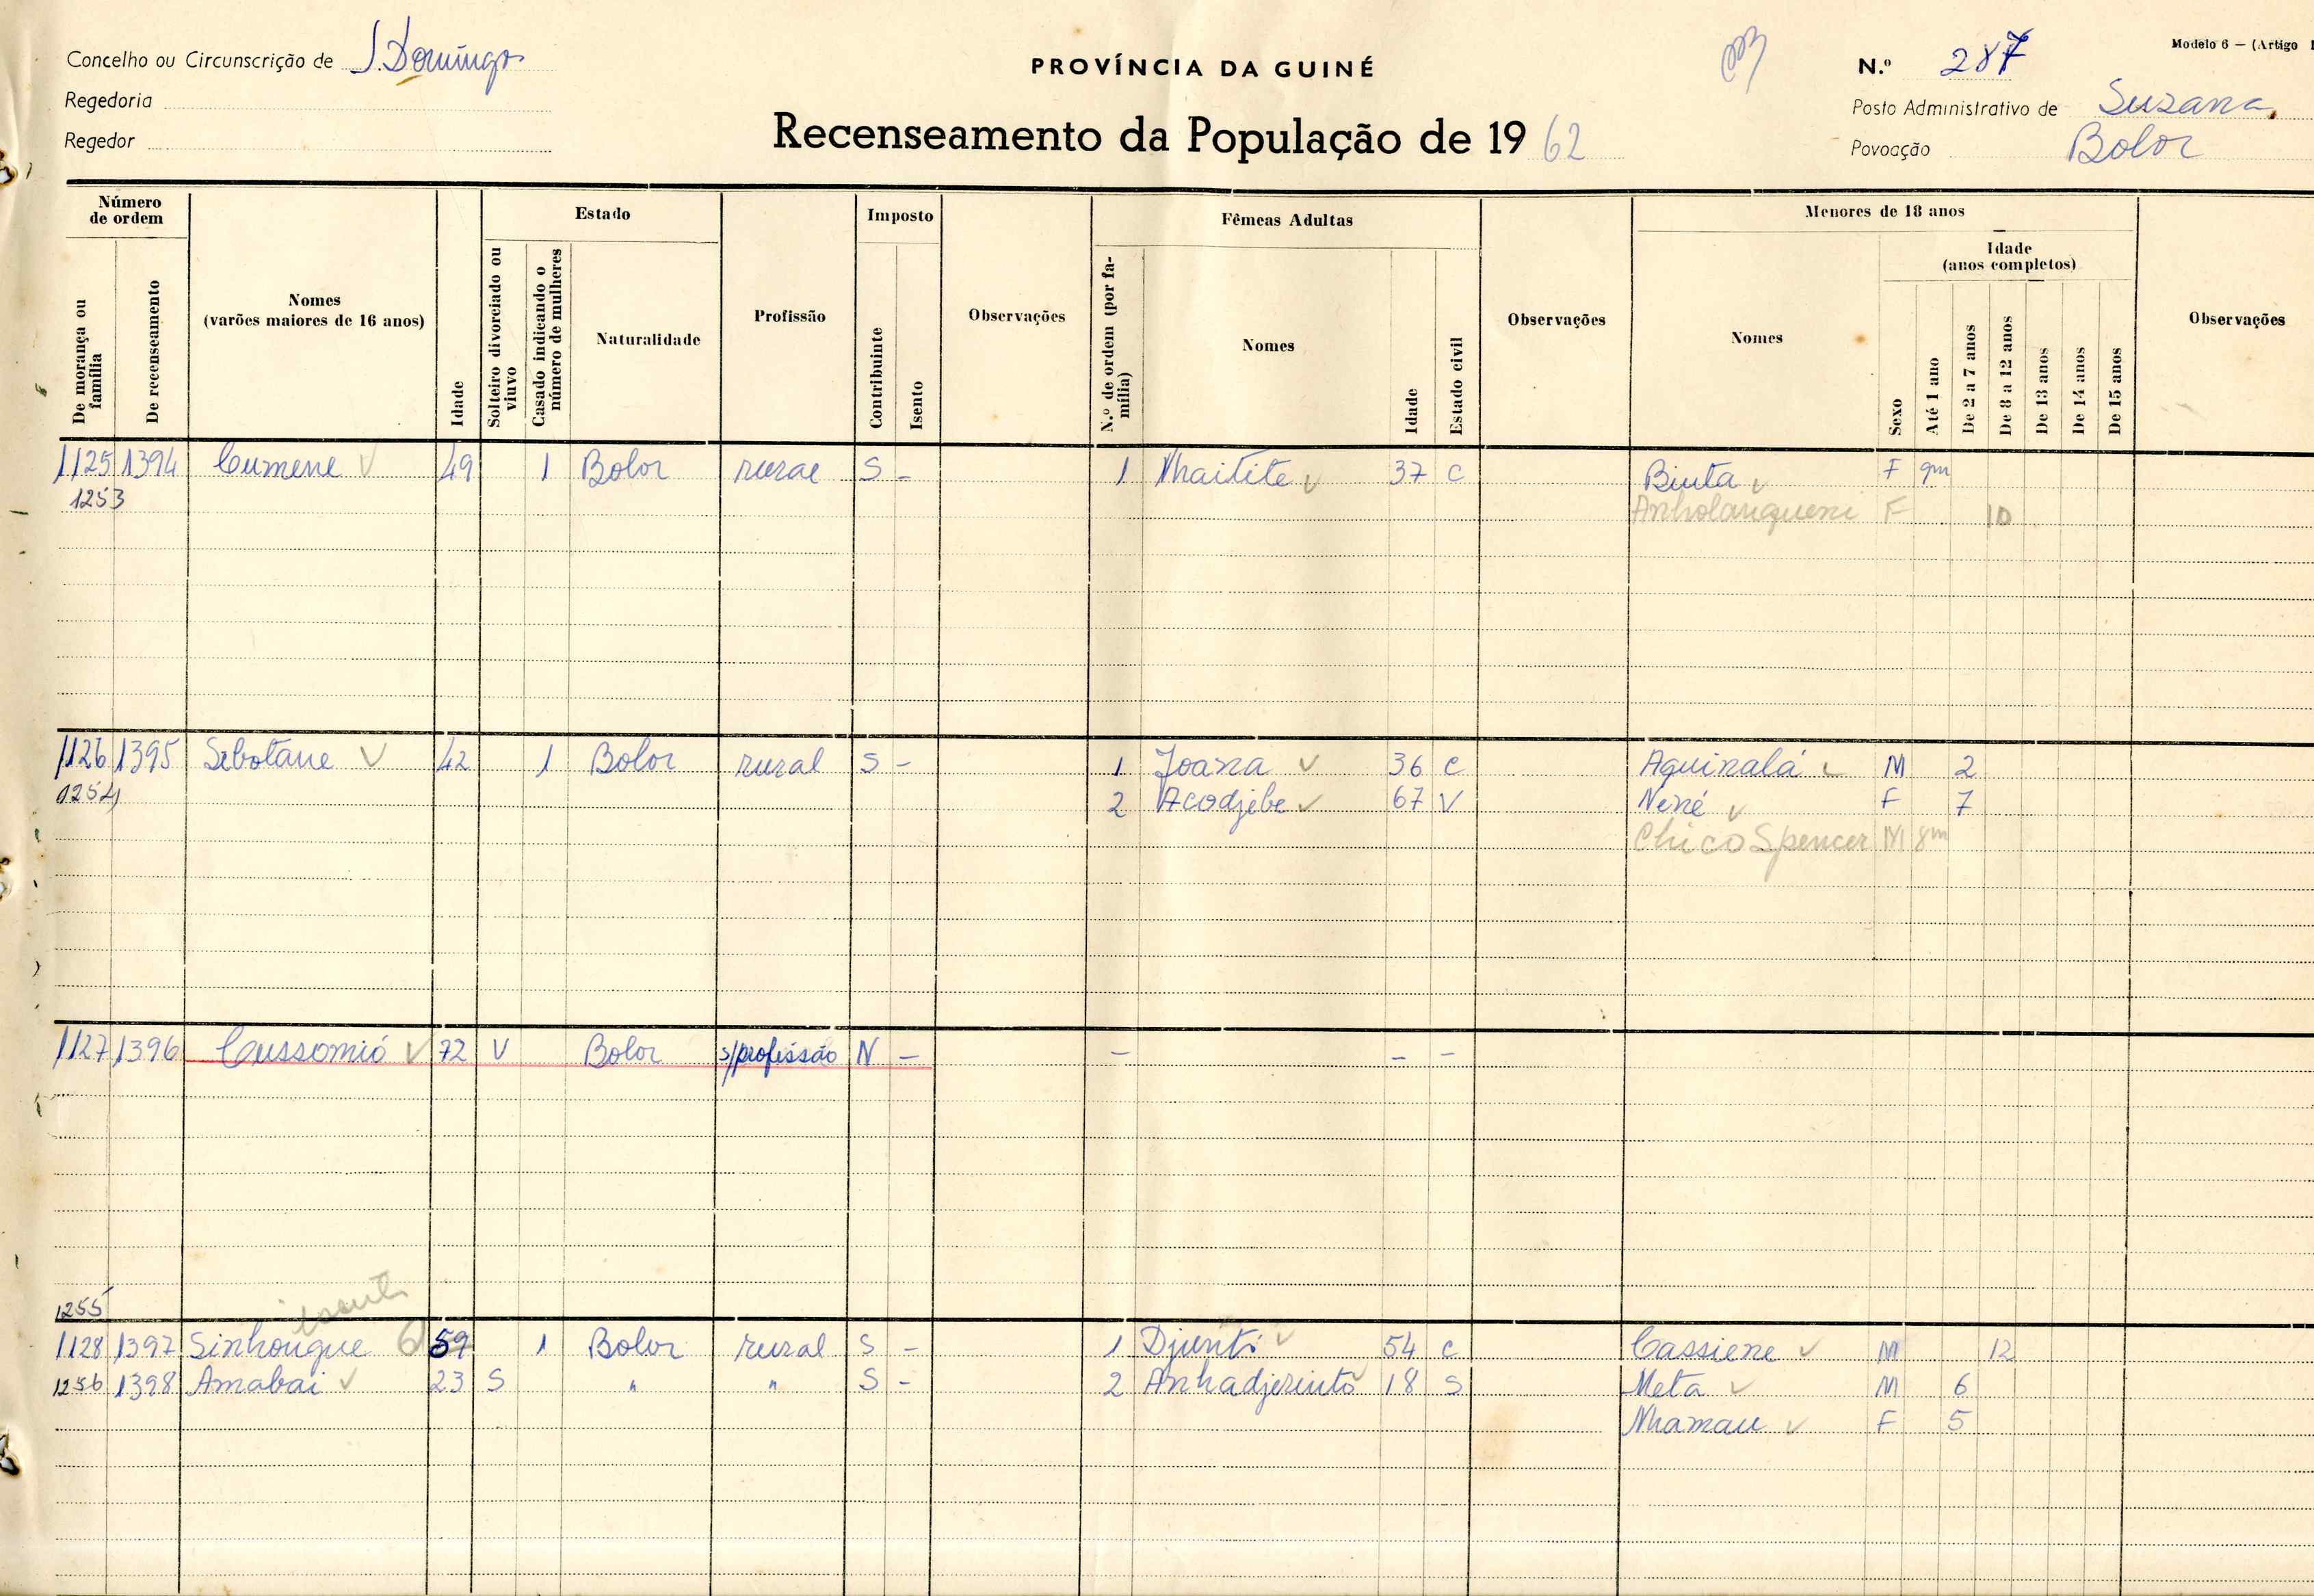 Concelho ou Circunscrição de S. Domingos
Regedoria
Regedor
PROVÍNCIA DA GUINÉ
Recenseamento da População de 1962
Modelo 6 — (Artigo
N.º 287
Posto Administrativo de Suzana
Povoação Bolor
Número de ordem
De morança ou família
De recenseamento
Nomes (varões maiores de 16 anos)
Idade
Estado
Solteiro divorciado ou viuvo
Casado indicando o número de mulheres
Naturalidade
Profissão
Imposto
Contribuinte
Isento
Observações
Fêmeas Adultas
N.º de ordem (por família)
Nomes
Idade
Estado civil
Observações
Menores de 18 anos
Nomes
Sexo
Idade (anos completos)
Até 1 ano
De 2 a 7 anos
De 8 a 12 anos
De 13 anos
De 14 anos
De 15 anos
Observações
1125 1394 Cumene 49 1 Bolor rural S - 1 Nhaitite 37 C Binta F 9m
1253 Anholanqueni F 10
1126 1395 Sebotane 42 1 Bolor rural S - 1 Joana 36 C Aquinalá M 2
1254 2 Acodjebe 67 V Nené F 7
Chico Spencer M 8m
1127 1396 Cussomió 72 V Bolor s/profissão N - - - -
1255 isento
1128 1397 Sinhonque 59 1 Bolor rural S - 1 Djunti 54 C Cassiene M 12
1256 1398 Amabai 23 S " " S - 2 Anhadjerintó 18 S Meta M 6
Nhamau F 5